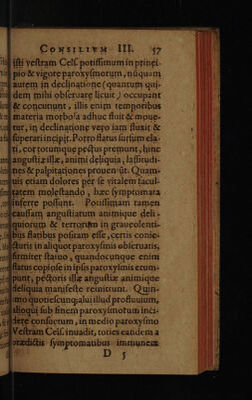 CONSILIVM III. 57
isti vestram Cels. potissimum in princi-
pio & vigore paroxysmorum, nũquam
autem in declinatione (quantum qui-
dem mihi obseruare licuit) occupant
& concutiunt, illis enim temporibus
materia morbosa adhuc fluit & moue-
tur, in declinatione vero iam fluxit &
superari incipit. Porro flatus sursum ela-
ti, cor totumque pectus premunt, hinc
angustiæ illæ, animi deliquia, lassitudi-
nes & palpitationes proueniũt. Quam-
uis etiam dolores per se vitalem facul-
tatem molestando, hæc symptomata
inferre possunt. Potissimam tamen
caussam angustiarum animique deli-
quiorum & terrorum in graueolenti-
bus flatibus positam esse, certis conie-
cturis in aliquot paroxysmis obseruatis,
firmiter statuo, quandocunque enim
flatus copiose in ipsis paroxysmis erum-
punt, pectoris illæ angustiæ animique
deliquia manifeste remittunt. Quin-
imo quotiescunque alui illud profluuium,
alioqui sub finem paroxysmorum inci-
dere consuetum, in medio paroxysmo
Vestram Cels. inuadit, toties eandem a
prædictis symptomatibus immunem
D 5